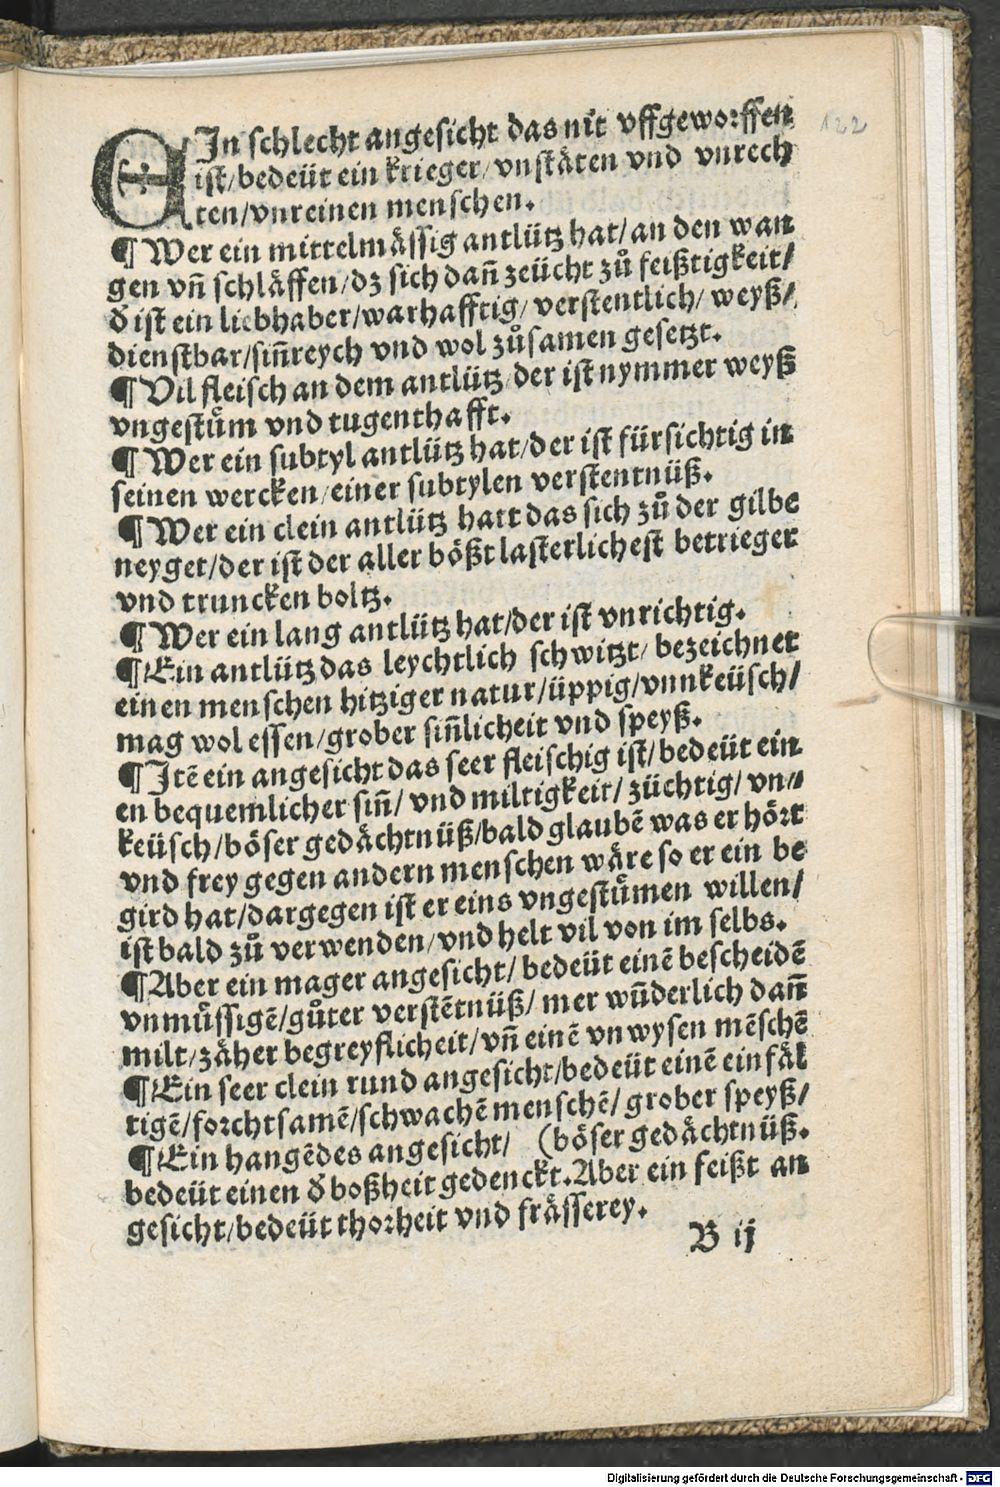 EIn schlecht angesicht das nit vffgeworffen
ist/bedeüt ein krieger/vnstäten vnd vnrech
ten/vnreinen menschen.
¶ Wer ein mittelmässig antlütz hat/an den wan
gen vñ schläffen/dz sich dañ zeücht zů feißtigkeit/
ð ist ein liebhaber/warhafftig/verstentlich/weyß/
dienstbar/siñreych vnd wol zůsamen gesetzt.
¶ Vil fleisch an dem antlütz der ist nymmer weyß
vngestům vnd tugenthafft.
¶ Wer ein subtyl antlütz hat/der ist fürsichtig in
seinen wercken/einer subtylen verstentnüß.
¶ Wer ein clein antlütz hatt das sich zů der gilbe
neyget/der ist der aller bößt lasterlichest betrieger
vnd truncken boltz.
¶ Wer ein lang antlütz hat/der ist vnrichtig.
¶ Ein antlütz das leychtlich schwitzt/bezeichnet
einen menschen hitziger natur/üppig/vnnkeüsch/
mag wol essen/grober siñlicheit vnd speyß.
¶ Itē ein angesicht das seer fleischig ist/bedeüt ein
en bequemlicher siñ/vnd miltigkeit/züchtig/vn⸗
keüsch/böser gedächtnüß/bald glaubē was er hört
vnd frey gegen andern menschen wäre so er ein be
gird hat/dargegen ist er eins vngestůmen willen/
ist bald zů verwenden/vnd helt vil von im selbs.
¶ Aber ein mager angesicht/bedeüt einē bescheidē
vnmůssigē/gůter verstētnüß/mer wūderlich dañ
milt/zäher begreyflicheit/vñ einē vnwysen mēschē
¶ Ein seer clein rund angesicht/bedeüt einē einfäl
tigē/forchtsamē/schwachē menschē/grober speyß/
¶ Ein hangēdes angesicht/ (böser gedächtnüß.
bedeüt einen ð boßheit gedenckt. Aber ein feißt an
gesicht/bedeüt thorheit vnd frässerey.
B ij
122
Digitalisierung gefördert durch die Deutsche Forschungsgemeinschaft - DFG